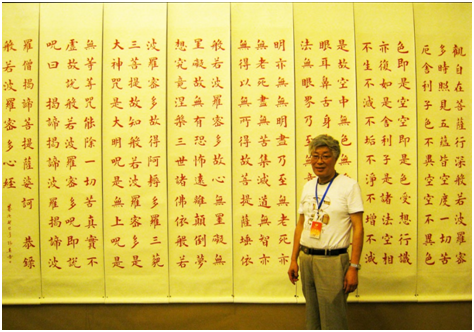 觀自在菩薩行深般若波羅蜜
多時照見五蘊皆空度一切苦
厄舍利子色不異空空不異色
色即是空空即是色受想行識
亦復如是舍利子是諸法空相
不生不滅不垢不淨不增不減
是故空中無色
眼耳鼻舌身
法無眼界乃至
明亦無無明盡乃至無老死亦
無老死盡無苦集滅道無智亦
無得以無所得故菩提薩埵依
般若波羅蜜多故心無罣礙無
罣礙故無有恐怖遠離顛倒夢
想究竟涅槃三世諸佛依般若
波羅蜜多故得阿耨多羅三藐
三菩提故知般若波羅蜜多是
大神咒是大明咒是無上咒是
無等等咒能除一切苦真實不
虛故說般若波羅蜜多咒即說
咒曰 揭諦揭諦波羅揭諦波
羅僧揭諦菩提薩婆訶 恭錄
般若波羅蜜多心經